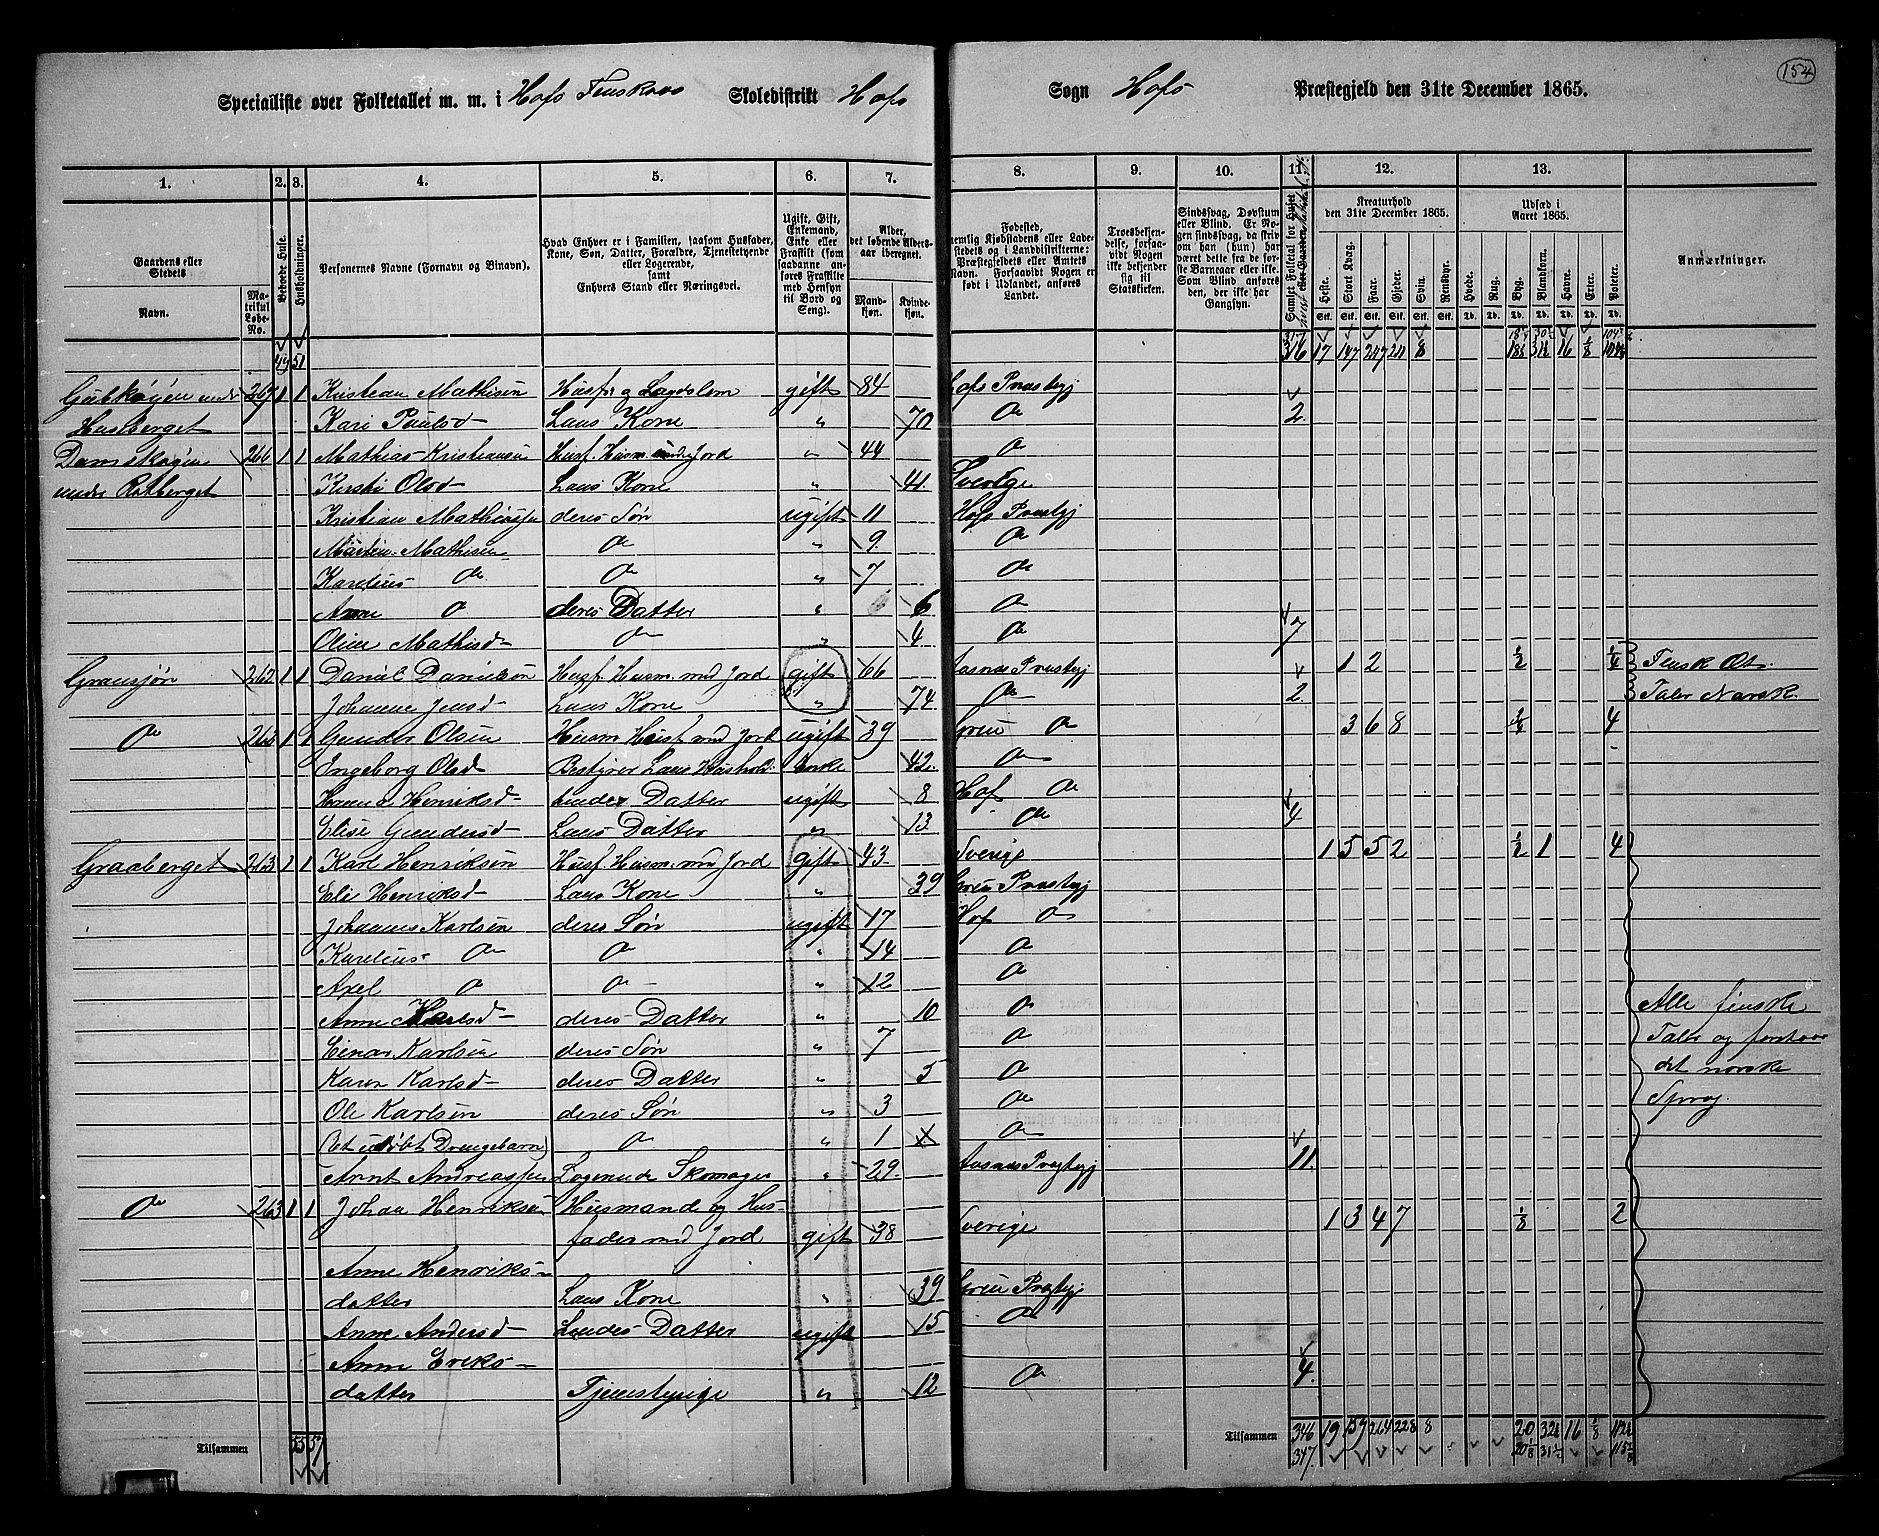 154
Specialliste over Folketallet m. m. i Hofs Finskov Skoledistrikt Hofs Sogn Hofs Præstegjeld den 31te December 1865.
1. 2. 3. 4. 5. 6. 7. 8. 9. 10. 11. 12. 13.
Gaardens eller Stedets
Navn.
Matrikul Løbe-No.
Beboede Huse.
Husholdninger.
Personernes Navne (Fornavn og Binavn).
Hvad Enhver er i Familien, saasom Husfader, Kone, Søn, Datter, Forældre, Tjenestetyende eller Logerende, samt Enhvers Stand eller Næringsvei.
Ugift, Gift, Enkemand, Enke eller Fraskilt (som saadanne anføres Fraskilte med Hensyn til Bord og Seng).
Alder, det løbende Alders-aar iberegnet.
Mandkjøn. Kvindekjøn.
Fødested,
Troesbekjendelse, forsaavidt Nogen ikke bekjender sig til Statskirken.
Sindssvag, Døvstum eller Blind.
Kreaturhold den 31te December 1865.
Heste. Stort Kvæg. Faar. Gjeder. Svin. Rensdyr.
Udsæd i Aaret 1865.
Hvede. Rug. Byg. Blandkorn. Havre. Erter. Poteter.
Anmærkninger.
49 51 316 17 147 247 8 16
267 1 1 Kristean Mathisen Husf. og Lægdslem gift 84 Hofs Præstgj
Kari Paulsd Hans Kone " 70 Do 2
266 1 1 Mathias Kristiansen Husf. Husm. uden Jord " 44 Do
under Rotberget Kirsti Olsd Hans Kone " 41 Sverige
Kristian Mathisen deres Søn ugift 11 Hofs Præstgj
Martin Mathisen Do " 9 Do
Karelius Do Do " 7 Do
Anne Do deres Datter " 6 Do
Oline Mathisd Do " 4 Do 7
Graasjøn 262 1 1 Daniel Danielsen Husf. Husm. med Jord gift 66 Aasnes Præstgj 1 2 ½ ¼ Finsk Æt.
Johanne Jensd Hans Kone " 74 Do 2 Taler Norsk
Do 1 1 Gunder Olsen Husm Husf. med Jord ugift 39 Grue Do 3 6 8 4
Ingeborg Olsd Bestyrer Hans Hushold. Enke 42 Do
Henriksd hendes Datter ugift 8 Hof Do
Elise Gundersd Hans Datter " 13 Do 4
Graaberget 263 1 1 Karl Henriksen Husf. Husm. med Jord gift 43 Sverige 1 5 5 2 ½ 1 4
Eli Henriksd Hans Kone " 39 Grue Præstgj
Johannes Karlsen deres Søn ugift 17 Hof Do
Karelius Do Do " 14 Do
Axel Do Do " 12 Do
Anne Karlsd deres Datter " 10 Do Alle finske
Einar Karlsen deres Søn " 7 Do Taler og forstaar
Karen Karlsd deres Datter " 5 Do det norske
Ole Karlsen deres Søn " 3 Do Sprog.
(Et udøbt Drengebarn) Do " 1 Do
Arnt Andreassen Logerende Skomager " 29 Aasnes Præstgj 11
Do 263 1 1 Johan Henriksen Husmand og Hus-
fader med Jord gift 38 Sverige 1 3 4 7 ⅛ 2
Anne Henriks-
datter Hans Kone " 39 Grue Præstgj
Anne Andersd Hendes Datter ugift 15 Do
Anne Eriks-
datter Tjenestepige " 12 Do 4
Tilsammen 53 57 Tilsammen 346 19 157 264 228 8 20 32½ 16 ⅛
347 20⅛ 31½